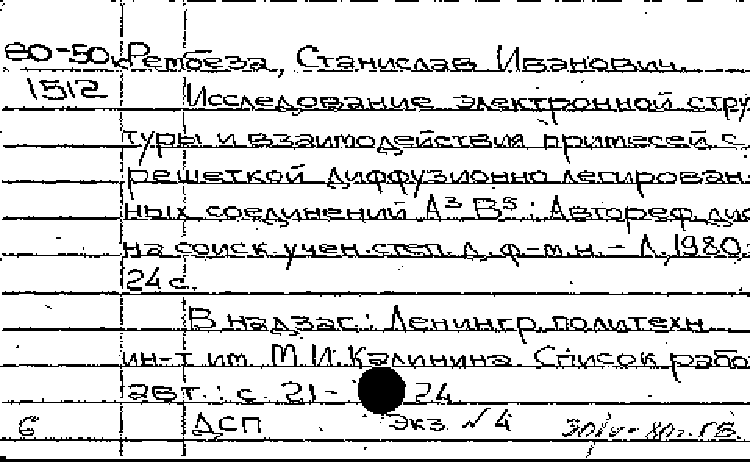 80-50к Рембеза, Станислав Иванович
1512 Исследование электронной стру
туры и взаимодействия примесей с
решеткой диффузионно легирован-
ных соединений А³ В⁵ : Автореф. дис
на соиск. учен. степ. д. ф.-м. н. - Л., 1980.
24 с.
В надзаг.: Ленингр. политехн.
ин-т им. М.И. Калинина. Список рабо
авт.: с. 21- 24
6 ДСП Экз № 4